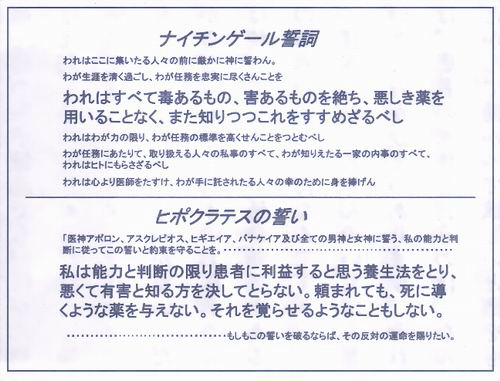 ナイチンゲール誓詞
われはここに集いたる人々の前に厳かに神に誓わん。
わが生涯を清く過ごし、わが任務を忠実に尽くさんことを
われはすべて毒あるもの、害あるものを絶ち、悪しき薬を
用いることなく、また知りつつこれをすすめざるべし
われはわが力の限り、わが任務の標準を高くせんことをつとむべし
わが任務にあたりて、取り扱える人々の私事のすべて、わが知りえたる一家の内事のすべて、
われはヒトにもらさざるべし
われは心より医師をたすけ、わが手に託されたる人々の幸のために身を捧げん
ヒポクラテスの誓い
「医神アポロン、アスクレピオス、ヒギエイア、パナケイア及び全ての男神と女神に誓う、私の能力と判
断に従ってこの誓いと約束を守ることを。‥‥‥‥‥‥‥‥‥‥‥‥‥‥‥‥‥‥‥‥
私は能力と判断の限り患者に利益すると思う養生法をとり、
悪くて有害と知る方を決してとらない。頼まれても、死に導
くような薬を与えない。それを覚らせるようなこともしない。
‥‥‥‥‥‥‥‥‥‥‥‥‥‥‥‥もしもこの誓いを破るならば、その反対の運命を賜りたい。